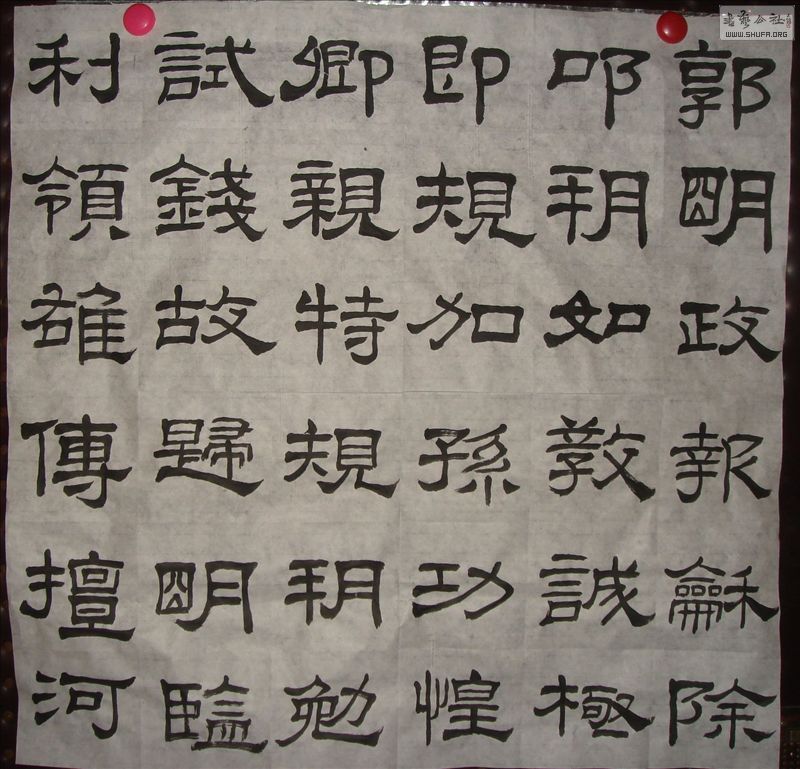 郭朙政報龢除
叩玥如敎誠極
即規加孫功惶
卿親特規玥勉
試錢故歸朙
利領雄傳擅河
書藝公社
WWW.SHUFA.ORG